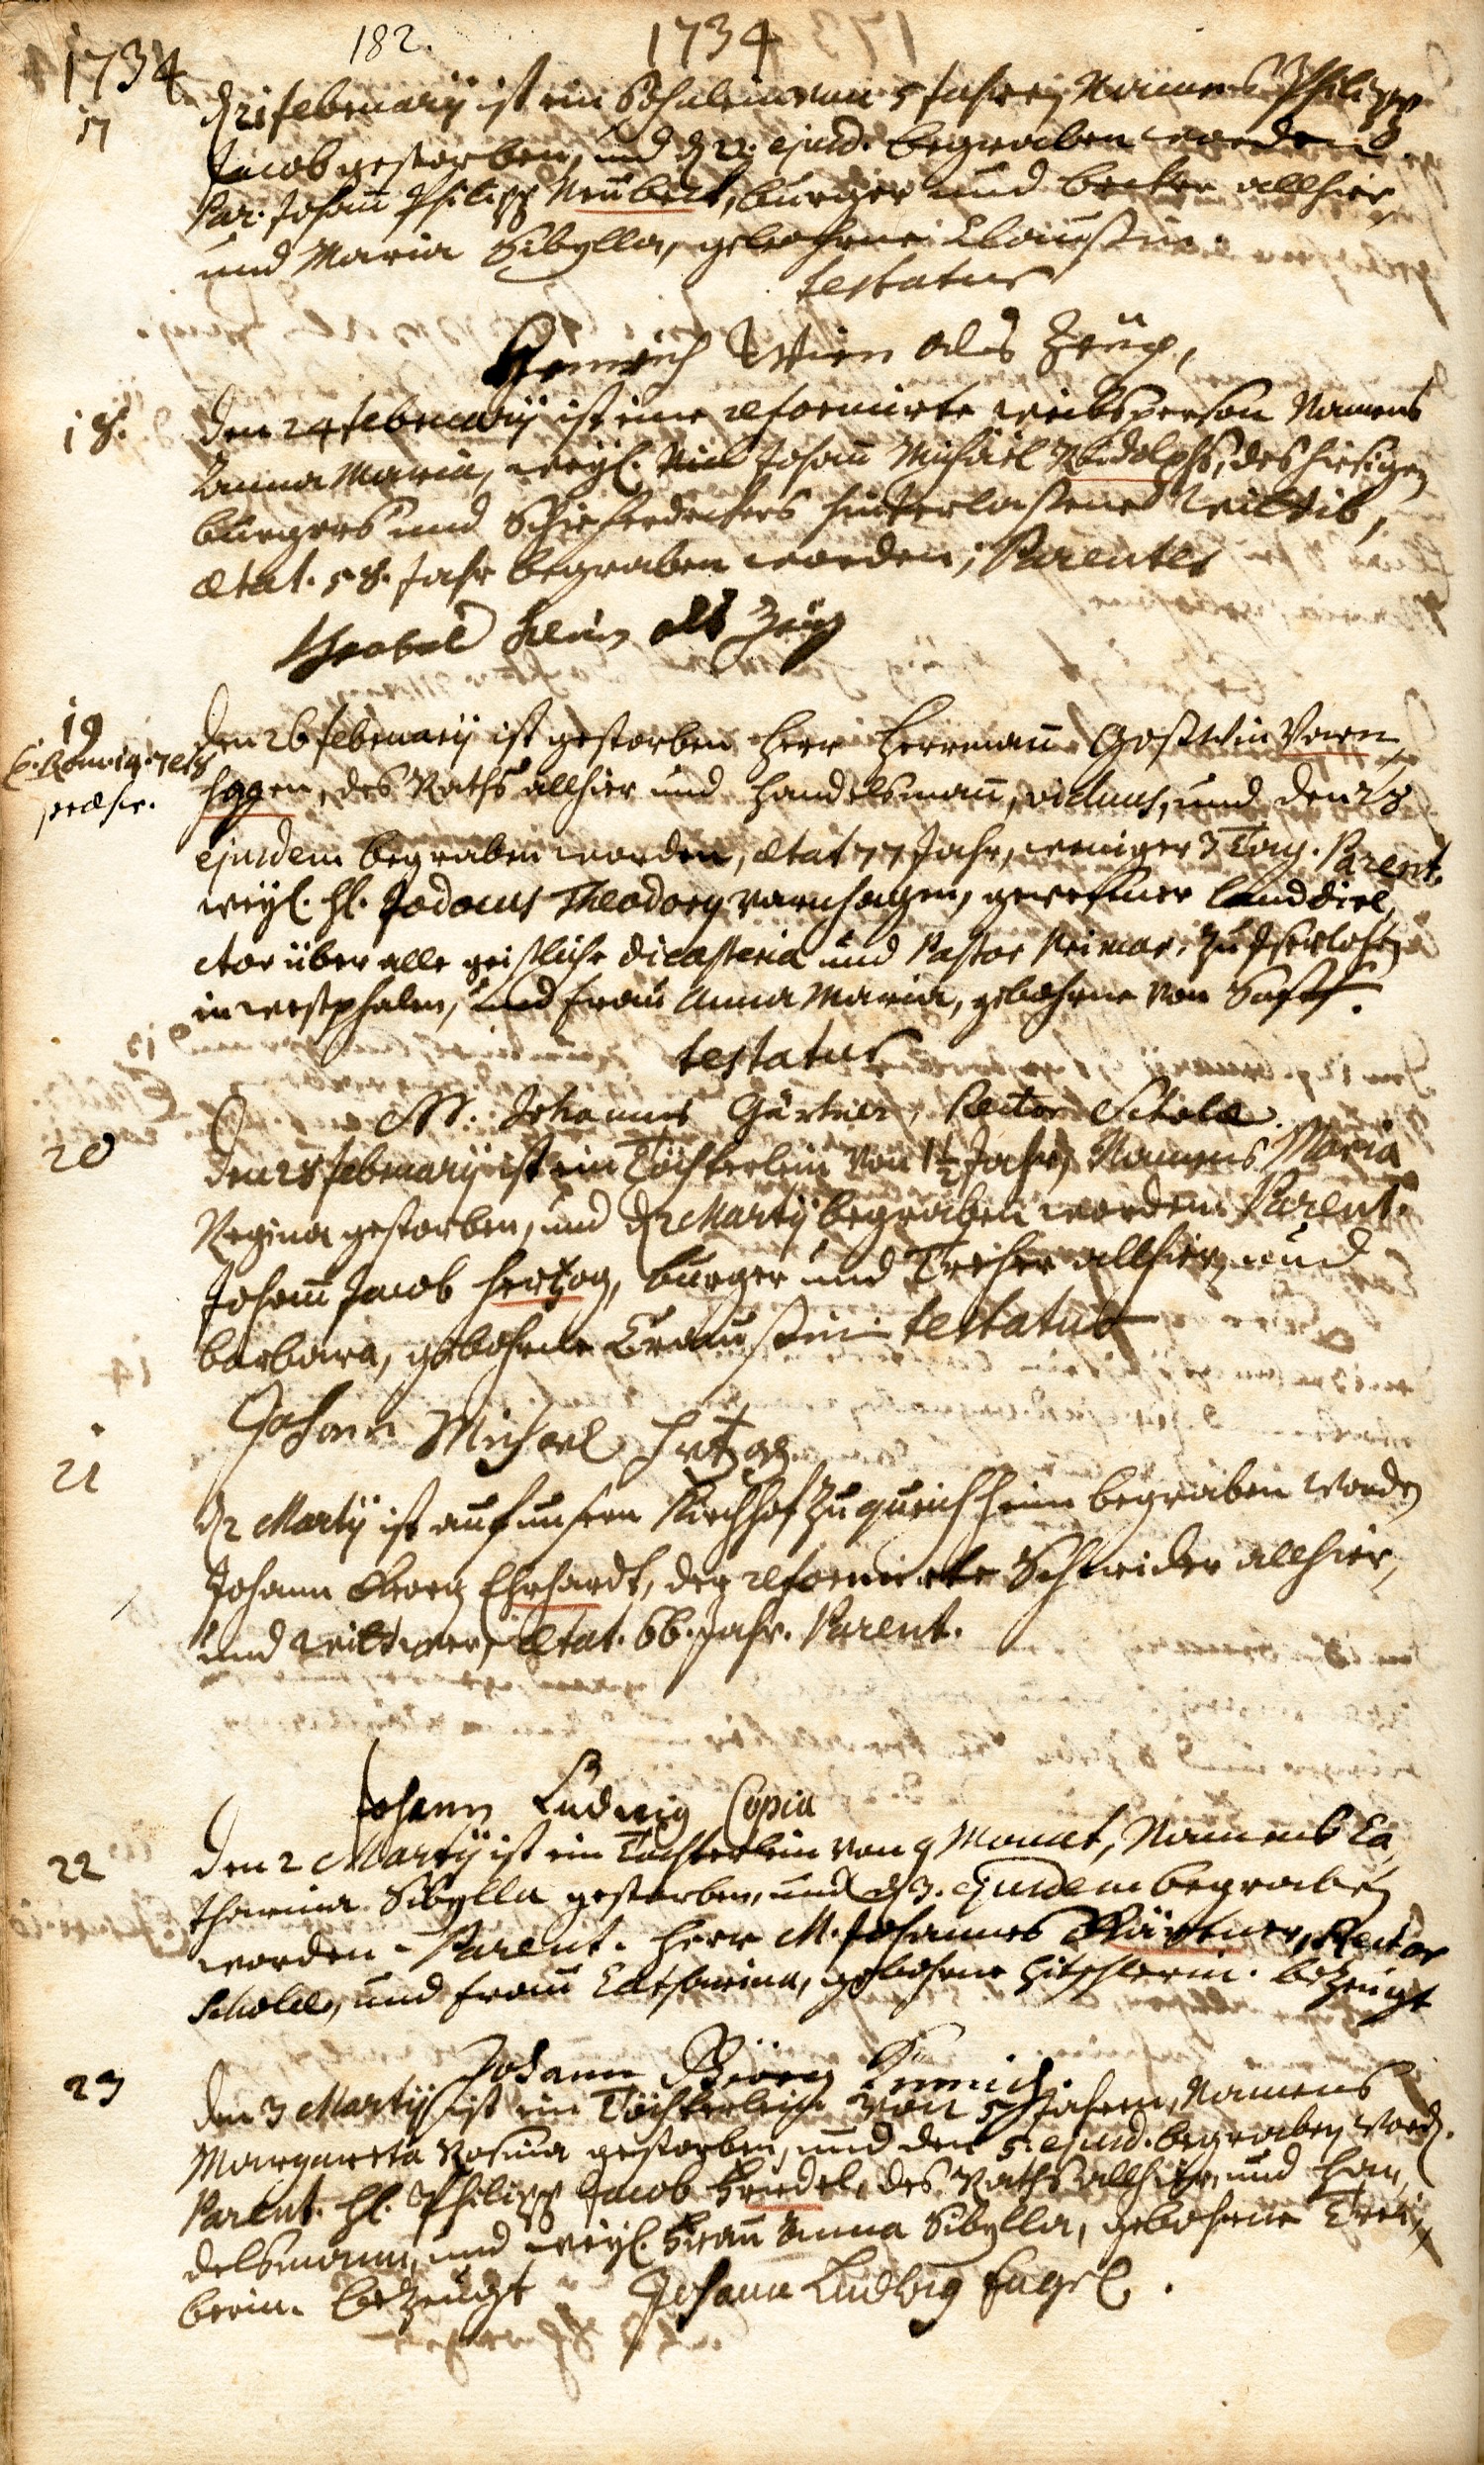 182. 1734
1734
17 d 21 februarij ist ein Söhnlein von 5 Jahren, Namens Philipp
Jacob gestorben, und d 22. ejusd. begraben worden.
Par. Johan̄ Philipp Neubert, burger und becker allhier,
und Maria Sibylla, gebohrne Claußin.
testatur
Henrich Wien als Zeüg,
18. Den 24 februarij ist eine reformirte weibsperson Namens
Anna Maria, weyl. Johan̄ Michäel Rudolphs, des hiesigen
burgers und Schieferdeckers hinterlaßene Wittib,
ætat. 58. Jahr begraben worden; Parentes
als Zeüg
19 Den 26 februarij ist gestorben Herr Herrman̄ Goßwin Varn
præser.
hagen, des Raths allhier und Handelsman̄, viduus, und den 28
ejusdem begraben worden, ætat 77 Jahr, weniger 3 Tag. Parent.
weyl. H. Jodocus Theodorg Varnhagen, gewesener Landdire
ctor über alle geistliche dicasteria und Pastor Primar. zu Iserlohn
in westphalen, und Frau Anna Maria, gebohrne von
testatur
M. Johannes Gärtner, Rector Scholæ.
20 Den 28 februarij ist ein Töchterlein von 1½ Jahr, Namens Maria
Regina gestorben, und d 2 Martij begraben worden. Parent.
Johan̄ Jacob Hertzog, burger und Treher allhier, und
barbara, gebohrne Craußin. testatur
Johann Michael Hertzog
21
d 2 Martij ist auf unsern Kirchhof zu queichheim begraben worden
Johann Georg Ehrhardt, der reformirte Schneider allhier,
und Wittwer, ætat. 66. Jahr. Parent.
Johann Ludwig Copia
22 Den 2 Martij ist ein Töchterlein von 9 Monat, Namens Ca
tharina Sibylla gestorben, und d 3. ejusdem begraben
worden. Parent. Herr M. Johannes Gärtner, Rector
Scholæ, und Frau Catharina, gebohrne Hitschlerin. bezeugt
Johann Georg
23 Den 3 Martij ist ein Töchterlein von 5 Jahren, Namens
Margareta Rosina gestorben, und den 5. ejusd. begraben word.
Parent. H. Philipp Jacob Hendel, des Raths allhier, und Han
delsmann, und weyl. Frau Anna Sibylla, gebohrne Trei
berin. bezeugt Johann Ludwig Engel.